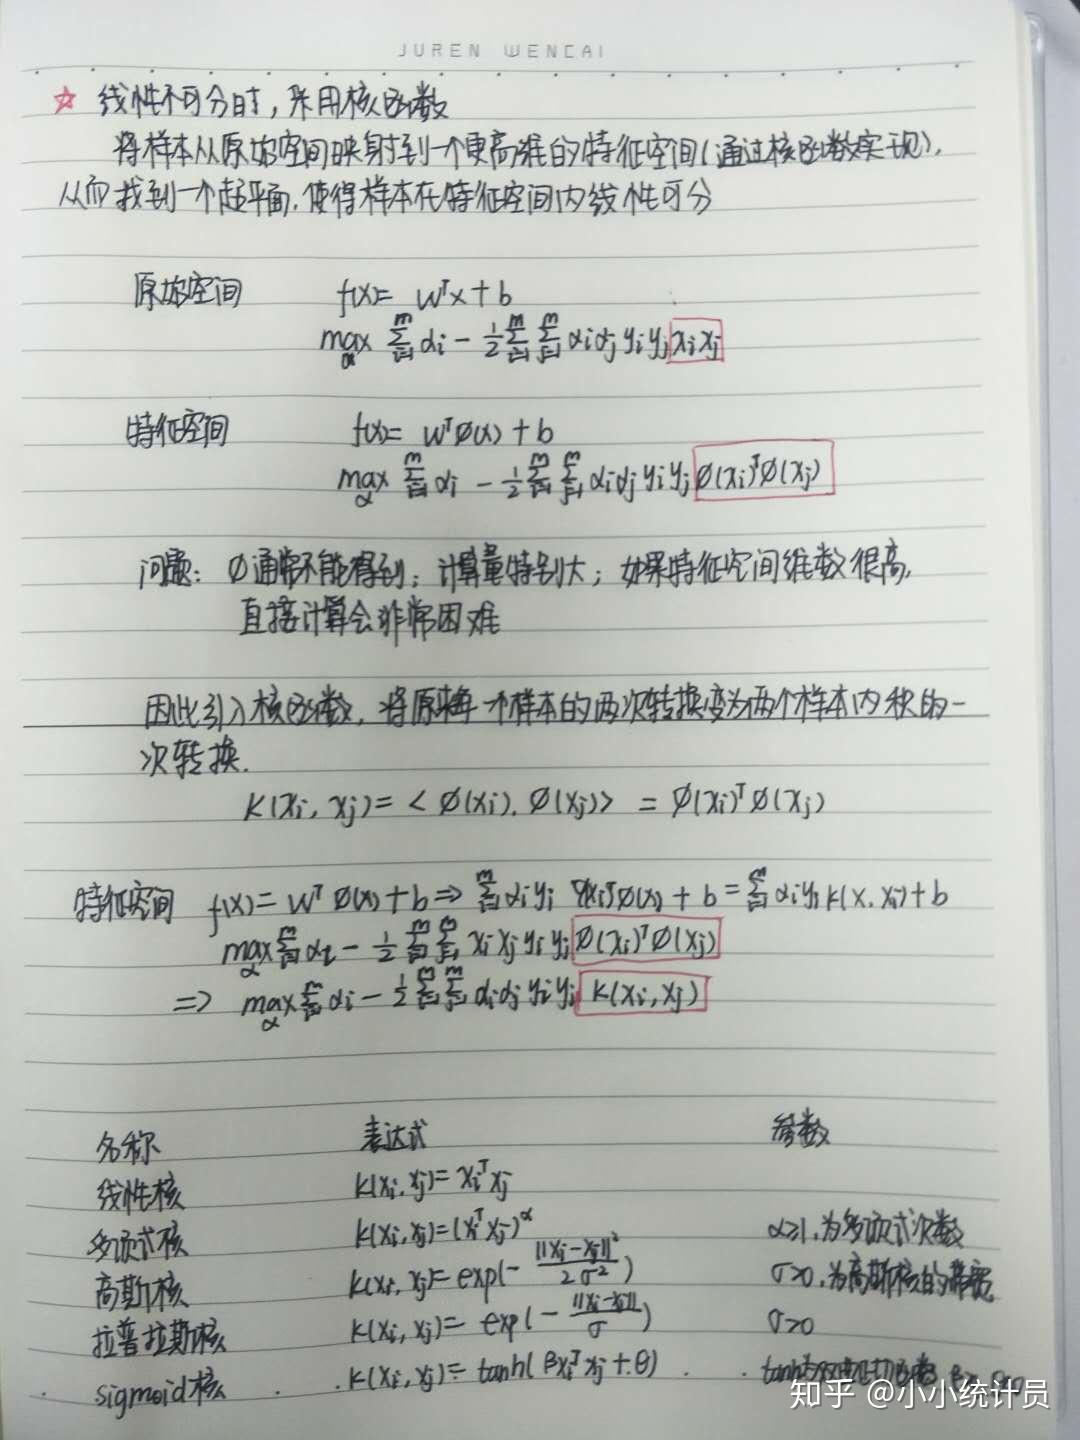 JUREN WENCAI
☆ 线性不可分时，采用核函数
将样本从原始空间映射到一个更高维的特征空间(通过核函数实现)，
从而找到一个超平面，使得样本在特征空间内线性可分
原始空间 f(x)= wᵀx+b
max_α Σ_{i=1}^m αi - 1/2 Σ_{i=1}^m Σ_{j=1}^m αiαj yiyj xixj
特征空间 f(x)= wᵀØ(x)+b
max_α Σ_{i=1}^m αi - 1/2 Σ_{i=1}^m Σ_{j=1}^m αiαj yiyj Ø(xi)ᵀØ(xj)
问题： Ø通常不能得到；计算量特别大；如果特征空间维数很高，
直接计算会非常困难
因此引入核函数，将原来每一个样本的两次转换变为两个样本内积的一
次转换.
K(xi, xj)= < Ø(xi), Ø(xj)> = Ø(xi)ᵀØ(xj)
特征空间 f(x)= wᵀØ(x)+b ⇒ Σ_{i=1}^m αiyi Ø(xi)ᵀØ(x) + b = Σ_{i=1}^m αiyi K(x, xi)+b
max_α Σ_{i=1}^m αi - 1/2 Σ_{i=1}^m Σ_{j=1}^m xixj yiyj Ø(xi)ᵀØ(xj)
⇒ max_α Σ_{i=1}^m αi - 1/2 Σ_{i=1}^m Σ_{j=1}^m αiαj yiyj K(xi, xj)
名称 表达式 参数
线性核 K(xi, xj)= xiᵀxj
多项式核 K(xi, xj)=(xiᵀxj)^α α≥1，为多项式次数
高斯核 K(xi, xj)= exp(- ||xi-xj||²/2σ²) σ>0，为高斯核的带宽
拉普拉斯核 K(xi, xj)= exp(- ||xi-xj||/σ) σ>0
sigmoid核 K(xi, xj)= tanh(βxiᵀxj+θ) tanh为双曲正切函数
知乎 @小小统计员